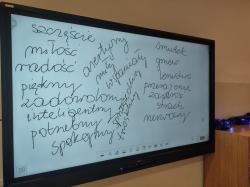 szczęście
miłość
radość
piękny
zadowolony
inteligentny
potrzebny
spokojny
asertywny
miły
wspaniały
smutek
gniew
lenistwo
przerażenie
zazdrość
strach
nerwowy